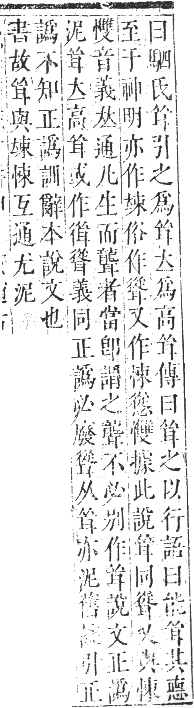 曰駟氏聳引之為聳大為高聳傳曰聳之以行語曰能聳其德
至于神明亦作竦俗作聳又作悚慫㦼據此說聳同聳又與悚
㦼音義𠀤通凡生而聾者當卽謂之聾不必別作聳說文正譌
泥聳大高聳或作㣿聳義同正譌必廢聳从聳亦泥舊註引正
譌不知正譌訓辭本說文也
書故聳與竦悚互通尤泥